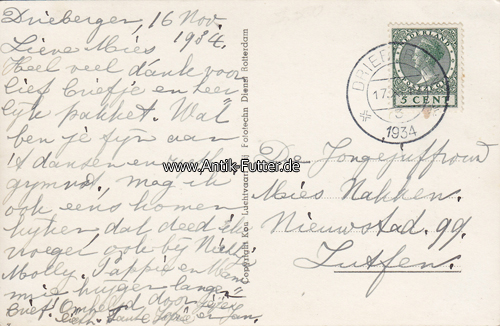 Driebergen, 16 Nov.
1934.
Lieve Mies
Heel veel dank voor
lief briefje en heer
lijk pakket. Wat
ben je fijn aan
't dansen en
gymn mag ik
ook eens komen
kijken, dat deed ik
vroeger ook bij Nicht
Molly. Pappie en Mams
mie
brief. Omhelsd door
Tante en Jan.
Copyright Kon. Luchtvaart Fototechn Dienst Rotterdam
www.Antik-Futter.de
NEDERLAND
5 CENT
DRIEB
17.
1934
De Jongejuffrouw
Mies Nakken.
Nieuwstad. 99.
Zutfen.